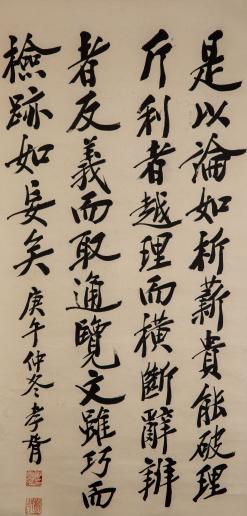 是以論如析薪貴能破理
斤利者越理而橫斷辭辨
者反義而取通覽文雖巧而
檢跡如妄矣
庚午仲冬孝胥